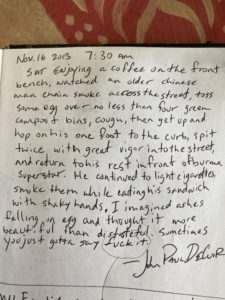 Nov. 16 2013 7:30 am
Sat enjoying a coffee on the front
bench, watched an older chinese
man chain smoke across the street, toss
some egg over no less then four green
compost bins, cough, then get up and
hop on his one foot to the curb, spit
twice with great vigor into the street,
and return to his rest in front of burma
Superstar. He continued to light cigarettes,
smoke them while eating his sandwich
with shaky hands, I imagined ashes
falling on egg and thought it more
beautiful than distasteful. Sometimes
you just gotta say fuck it.